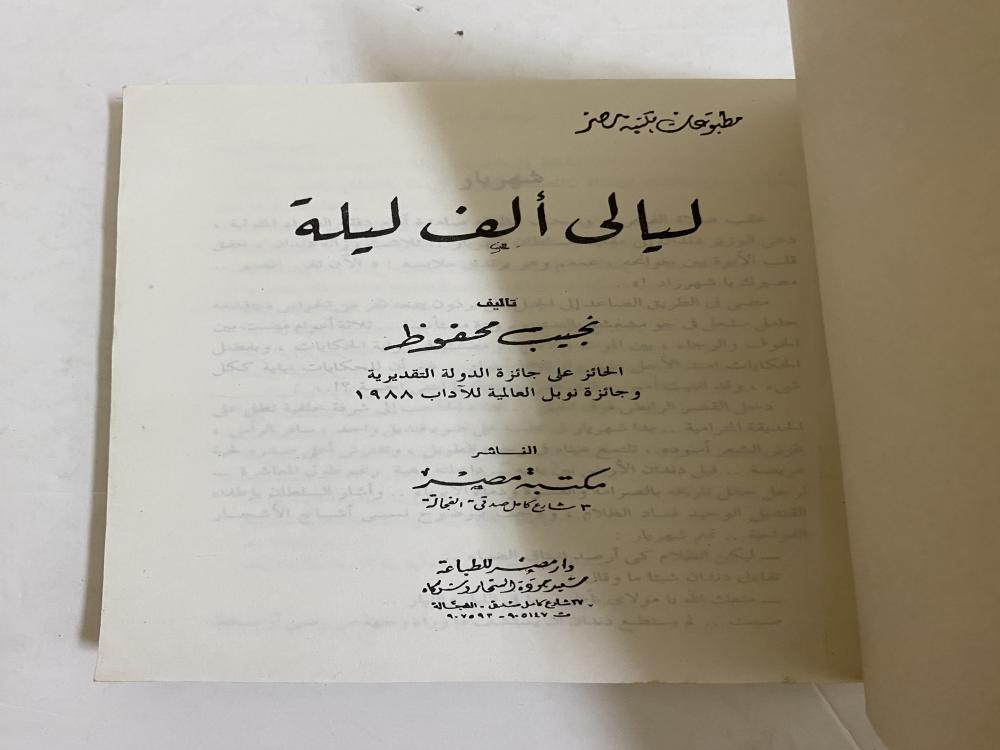 مطبوعات مكتبة مصر
ليالى ألف ليلة
تأليف
نجيب محفوظ
الحائز على جائزة الدولة التقديرية
وجائزة نوبل العالمية للآداب ١٩٨٨
الناشر
مكتبة مصر
٣ شارع كامل صدقى - الفجالة
دار مصر للطباعة
سعيد جودة السحار وشركاه
٣٧ شارع كامل صدقى - الفجالة
ت ٩٠٥١٤٧ - ٩٠٧٥٩٣